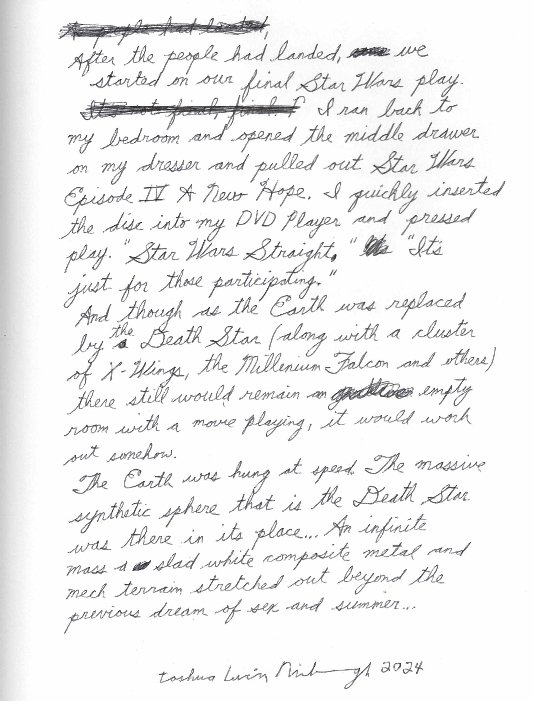 After the people had landed, we
started on our final Star Wars play.
I ran back to
my bedroom and opened the middle drawer
on my dresser and pulled out Star Wars
Episode IV A New Hope. I quickly inserted
the disc into my DVD Player and pressed
play. "Star Wars Straight." "It's
just for those participating."
And though as the Earth was replaced
by the Death Star (along with a cluster
of X-Wings, the Millenium Falcon and others)
there still would remain an empty
room with a movie playing, it would work
out somehow.
The Earth was hung at speed. The massive
synthetic sphere that is the Death Star
was there in its place... An infinite
mass a slad white composite metal and
mech terrain stretched out beyond the
previous dream of sex and summer...
2024